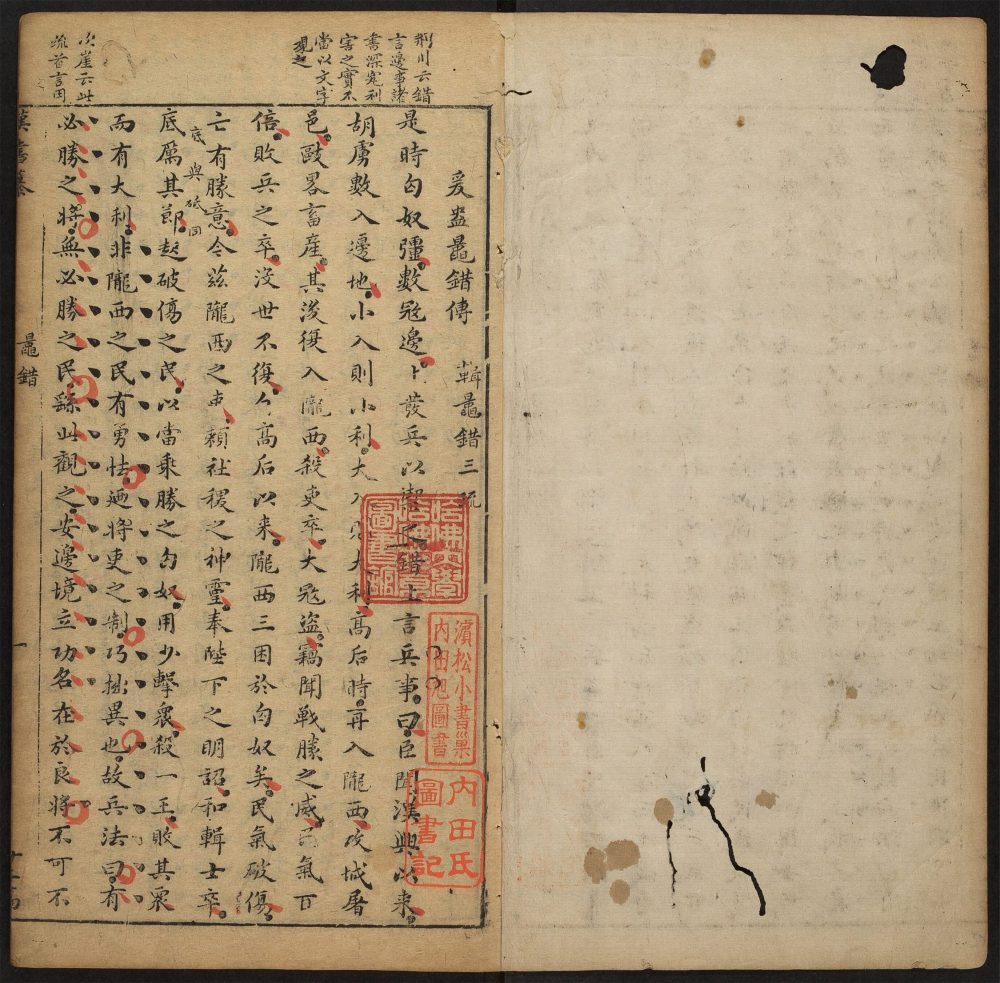 荆川云錯
言邊事諸
書深究利
害之實不
當以文字
觀之
爰盎鼂錯傳 輯鼂錯三疏
是時匈奴彊數寇邊上發兵以禦之錯上言兵事曰臣聞漢興以來
胡虜數入邊地小入則小利大入則大利高后時再入隴西攻城屠
邑敺畧畜產其後復入隴西殺吏卒大寇盜竊聞戰勝之威民氣百
倍敗兵之卒沒世不復自高后以來隴西三困於匈奴矣民氣破傷
亡有勝意今茲隴西之吏賴社稷之神靈奉陛下之明詔和輯士卒
底與砥同
底厲其節起破傷之民以當乘勝之匈奴用少擊衆殺一王敗其衆
而有大利非隴西之民有勇怯廼將吏之制巧拙異也故兵法曰有
次崖云此
疏首言因
必勝之將無必勝之民繇此觀之安邊境立功名在於良將不可不
漢書纂
鼂錯
一
哈佛大學
哈佛燕京
圖書館
濱松小書巢
内田旭圖書
内田氏
圖書記